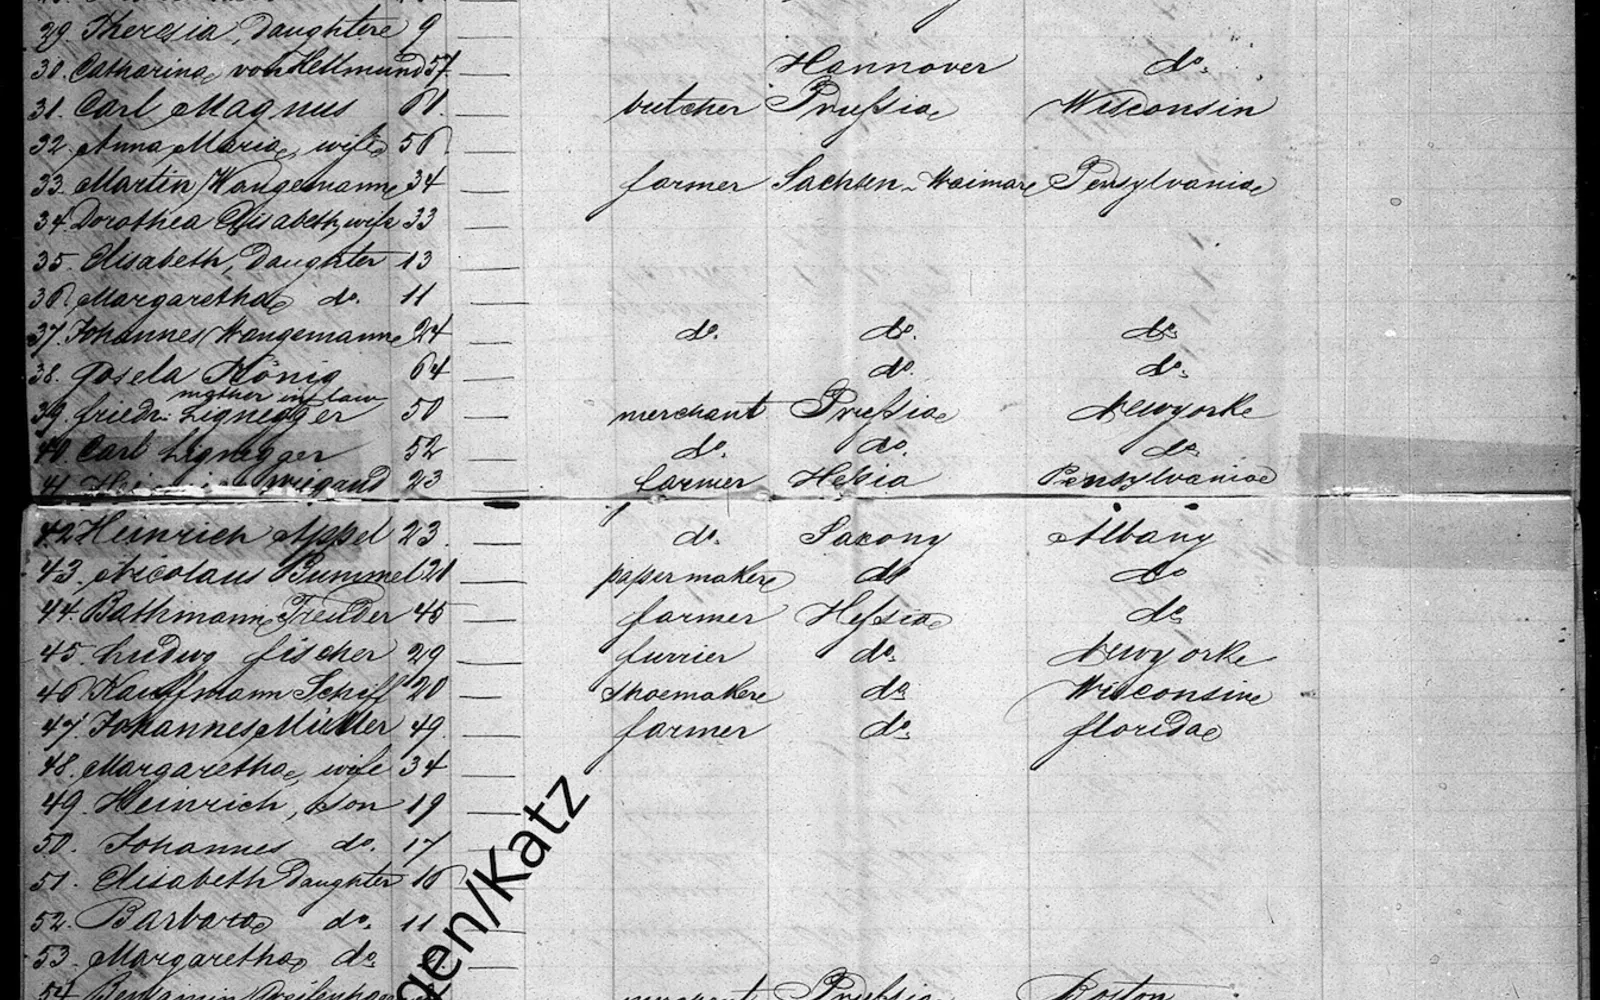 29. Theresia, Daughter 9
30. Catharina von Hellmund 57. Hannover do.
31. Carl Magnus 61. butcher Preussia Wisconsin
32. Anna Maria, wife 56
33. Martin Wangemann 34 farmer Sachsen-Waimar Pensylvania
34 Dorothea Elisabeth, wife 33
35. Elisabeth, Daughter 13
36. Margaretha do. 11
37. Johannes Wangemann 24 do. do. do.
38. Gosela König 64 do. do.
mother in law
39. Friedr. Lignegger 50 merchant Preussia Newyork
40 Carl Lignegger 52 do. do. do.
41 Wiegand 23 farmer Hessia Pensylvania
42 Heinrich Appel 23. do. Saxony Albany
43. Nicolaus Bummel 21 papermaker do do
44. Bathmann Treuder 45 farmer Hessia do.
45. Ludwig Fischer 29 furrier do. Newyork
46 Kauffmann Schiff 20 shoemaker do. Wisconsin
47. Johannes Müller 49. farmer do. Florida
48. Margaretha, wife 34
49. Heinrich, son 19
50. Johannes do. 17
51. Elisabeth Daughter 16
52. Barbara do. 11
53. Margaretha do
gen/Katz
54 Benjamin merchant Preussia Boston